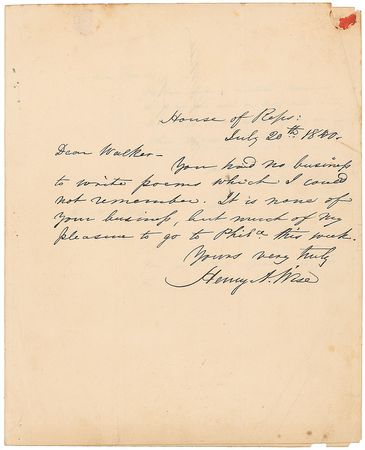 House of Reps:
July 20th 1840.
Dear Walker-
You had no business
to write poems which I could
not remember. It is none of
your business, but much of my
pleasure to go to Phila. this week.
Yours very truly
Henry A. Wise